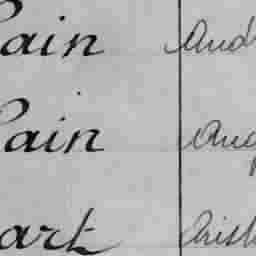 Pain And
Pain Aug
art Arist